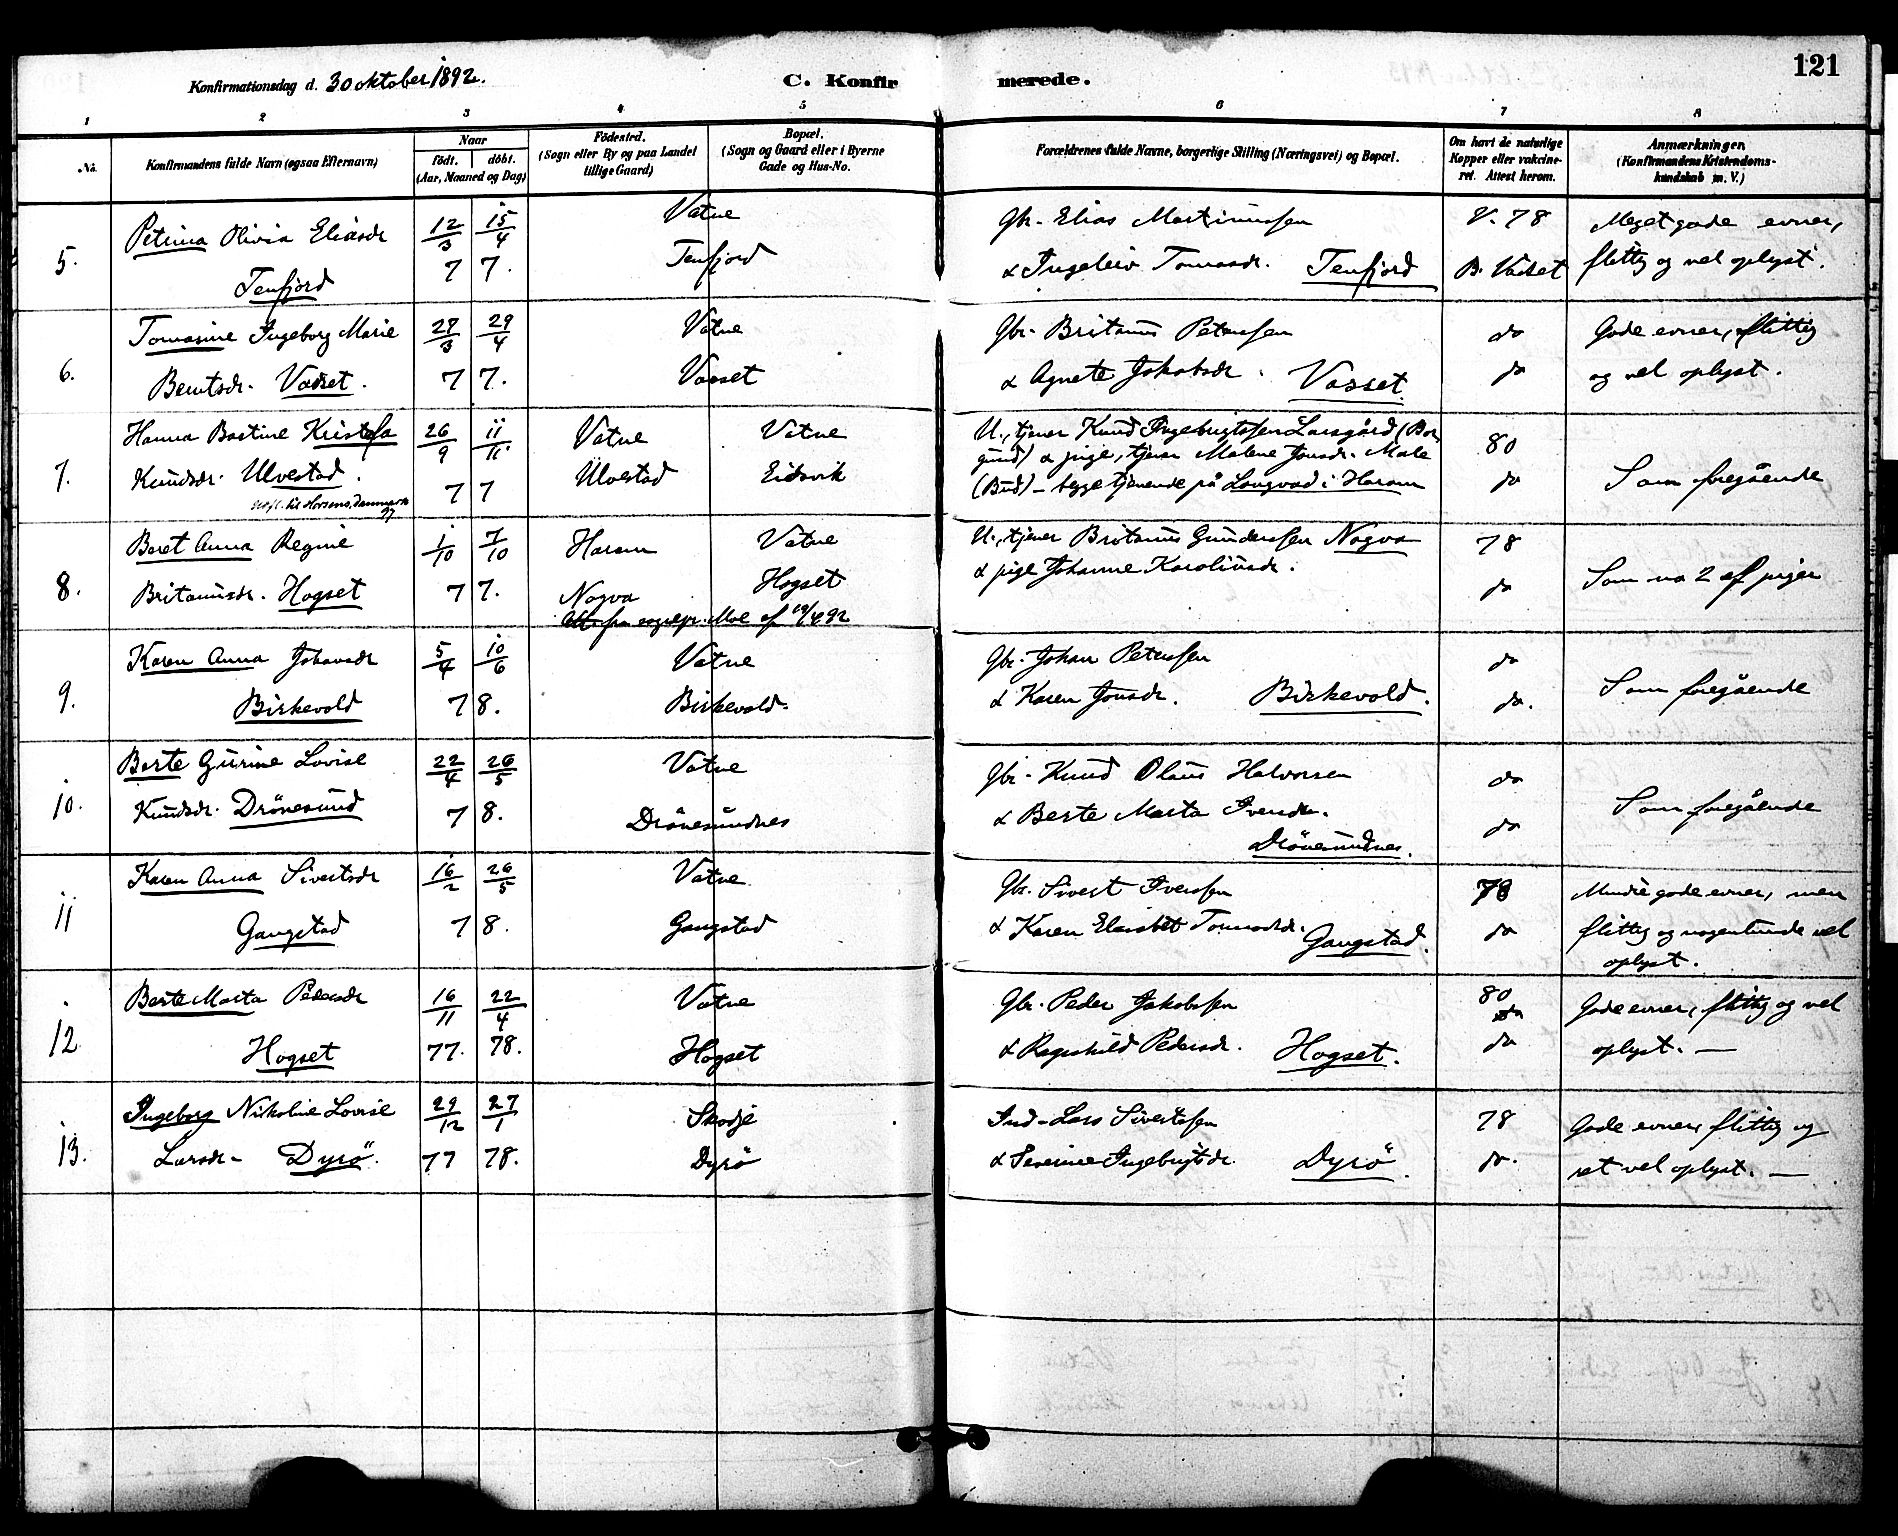 121
Konfirmationsdag d. 30 oktober 1892.
C. Konfirmerede.
1 2 3 4 5 6 7 8
No.
Konfirmandens fulde Navn (ogsaa Efternavn)
Naar
født. døbt.
(Aar, Maaned og Dag)
Fødested.
(Sogn eller By og paa Landet
tillige Gaard)
Bopæl.
(Sogn og Gaard eller i Byerne
Gade og Hus-No.
Forældrenes fulde Navne, borgerlige Stilling (Næringsvei) og Bopæl.
Om havt de naturlige
Kopper eller vakcine-
ret. Attest herom.
Anmærkninger
(Konfirmandens Kristendoms-
kundskab m. V.)
5.
Petrina Olivia Eliasdr
Tenfjord
12/3 15/4
7 7.
Vatne
Tenfjord
Gbr. Elias Martinussen
& Ingeleiv Tomasdr. Tenfjord
V. 78
B. Vadset
Meget gode evner,
flittig og vel oplyst.
6.
Tomasine Ingeborg Marie
Berntsdr. Vadset.
27/3 29/4
7 7.
Vatne
Vasset
Gbr. Britanus Peterssen
& Agnete Jakobsdr. Vasset.
do
do
Gode evner, flittig
og vel oplyst.
7.
Hanna Bastine Kristofa
Knudsdr. Ulvestad.
til Horsens, Danmark
26/9 11/11.
7 7
Vatne Vatne
Ulvestad Eidsvik
U., tjener Knud Ingebrigtssen Larsgård (Bor
gund) & pige, tjener Malene Jonsdr. Male
(Bud) - begge tjenende på Longvad i Haram
80
do
Som foregående
8.
Beret Anna Regine
Britanusdr. Hogset
1/10 7/10
7 7.
Haram Vatne
Nogva Hogset
fra sognepr. Moe af 19/4 92
U., tjener Britanus Gunderssen Nogva
& pige Johanne Karolinusdr.
78
do
Som no 2 af piger
9.
Karen Anna Johansdr
Birkevold
5/4 10/6
7 8.
Vatne
Birkevold.
Gbr. Johan Peterssen
& Karen Jonsdr. Birkevold.
do
do.
Som foregående
10.
Berte Gurine Lovise
Knudsdr. Drønesund
22/4 26/5
7 8.
Vatne
Drønesundnes
Gbr. Knud Olaus Halvorsen
& Berte Marta Iversdr.
Drønesundnes.
do
do
Som foregående
11
Karen Anna Sivertsdr
Gangstad
16/2 26/5
7 8.
Vatne
Gangstad
Gbr. Sivert Iverssen
& Karen Elisabet Tomasdr. Gangstad.
78
do
Mindre gode evner, men
flittig og nogenlunde vel
oplyst.
12.
Berte Marta Pedersdr
Hogset
16/11 22/4
77. 78.
Vatne
Hogset
Gbr. Peder Jakobssen
& Ragnhild Pedersdr. Hogset.
80
do
do
Gode evner, flittig og vel
oplyst. —
13.
Ingeborg Nikoline Lovise
Larsdr- Dyrø.
29/12 27/1
77 78.
Skodje
Dyrø
Ind- Lars Sivertssen
& Severine Ingebrigtsdr. Dyrø.
78
do.
Gode evner, flittig og
ret vel oplyst. —